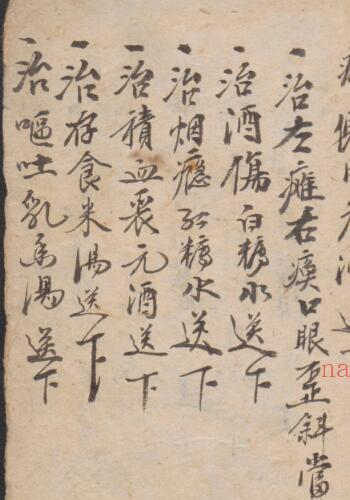 一治左癱右瘓口眼歪斜當
一治酒傷白糖水送下
一治烟癮紅糖水送下
一治積血丧元酒送下
一治存食米湯送下
一治嘔吐乳香湯送下
na